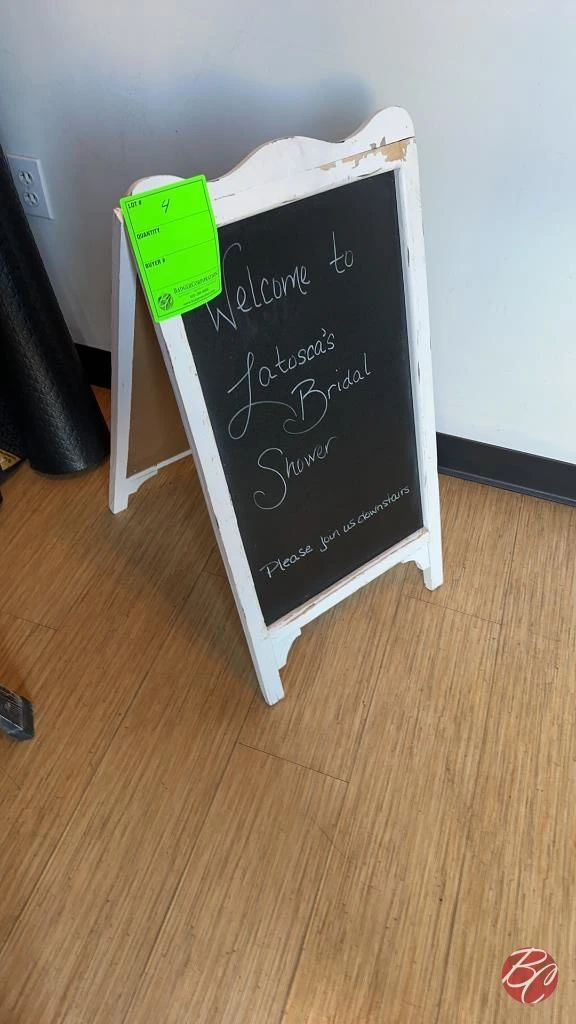 LOT # 4
QUANTITY
BUYER #
BADGER CORPORATION
Welcome to
Latosca's
Bridal
Shower
Please join us downstairs
BC